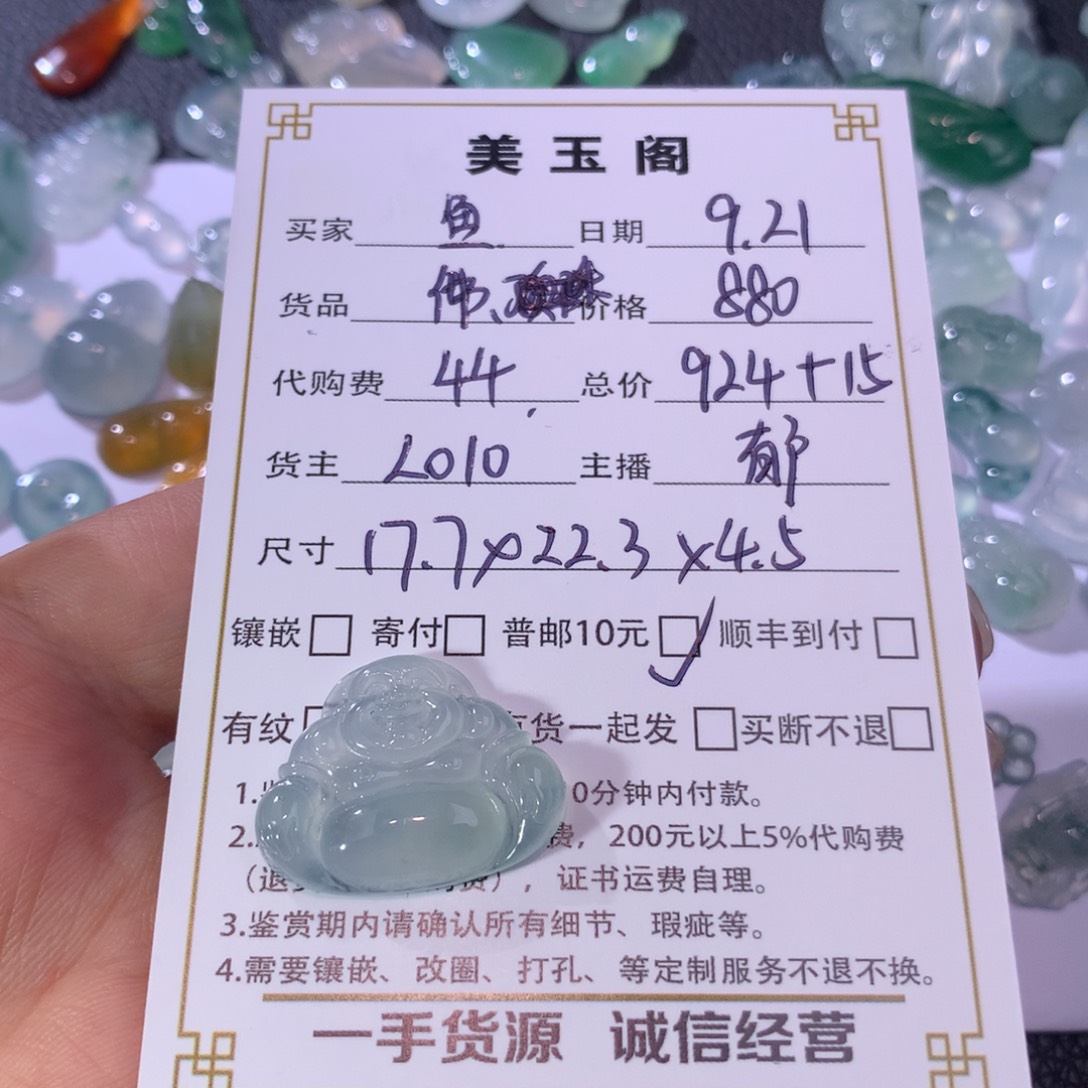 美玉阁
买家 鱼 日期 9.21
货品 佛、 价格 880
代购费 44 总价 924+15
货主 L010 主播 郁
尺寸 17.7×22.3×4.5
镶嵌 □ 寄付 □ 普邮10元 ☑ 顺丰到付 □
有纹 货一起发 □ 买断不退 □
1. 0分钟内付款。
2. 费，200元以上5%代购费
（退 费），证书运费自理。
3.鉴赏期内请确认所有细节、瑕疵等。
4.需要镶嵌、改圈、打孔、等定制服务不退不换。
一手货源 诚信经营